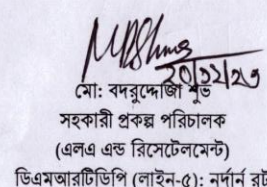 ২০/১২/২৩
মো: বদরুদ্দোজা শুভ
সহকারী প্রকল্প পরিচালক
(এলএ এন্ড রিসেটেলমেন্ট)
ডিএমআরটিডিপি (লাইন-৫): নর্দার্ন রুট